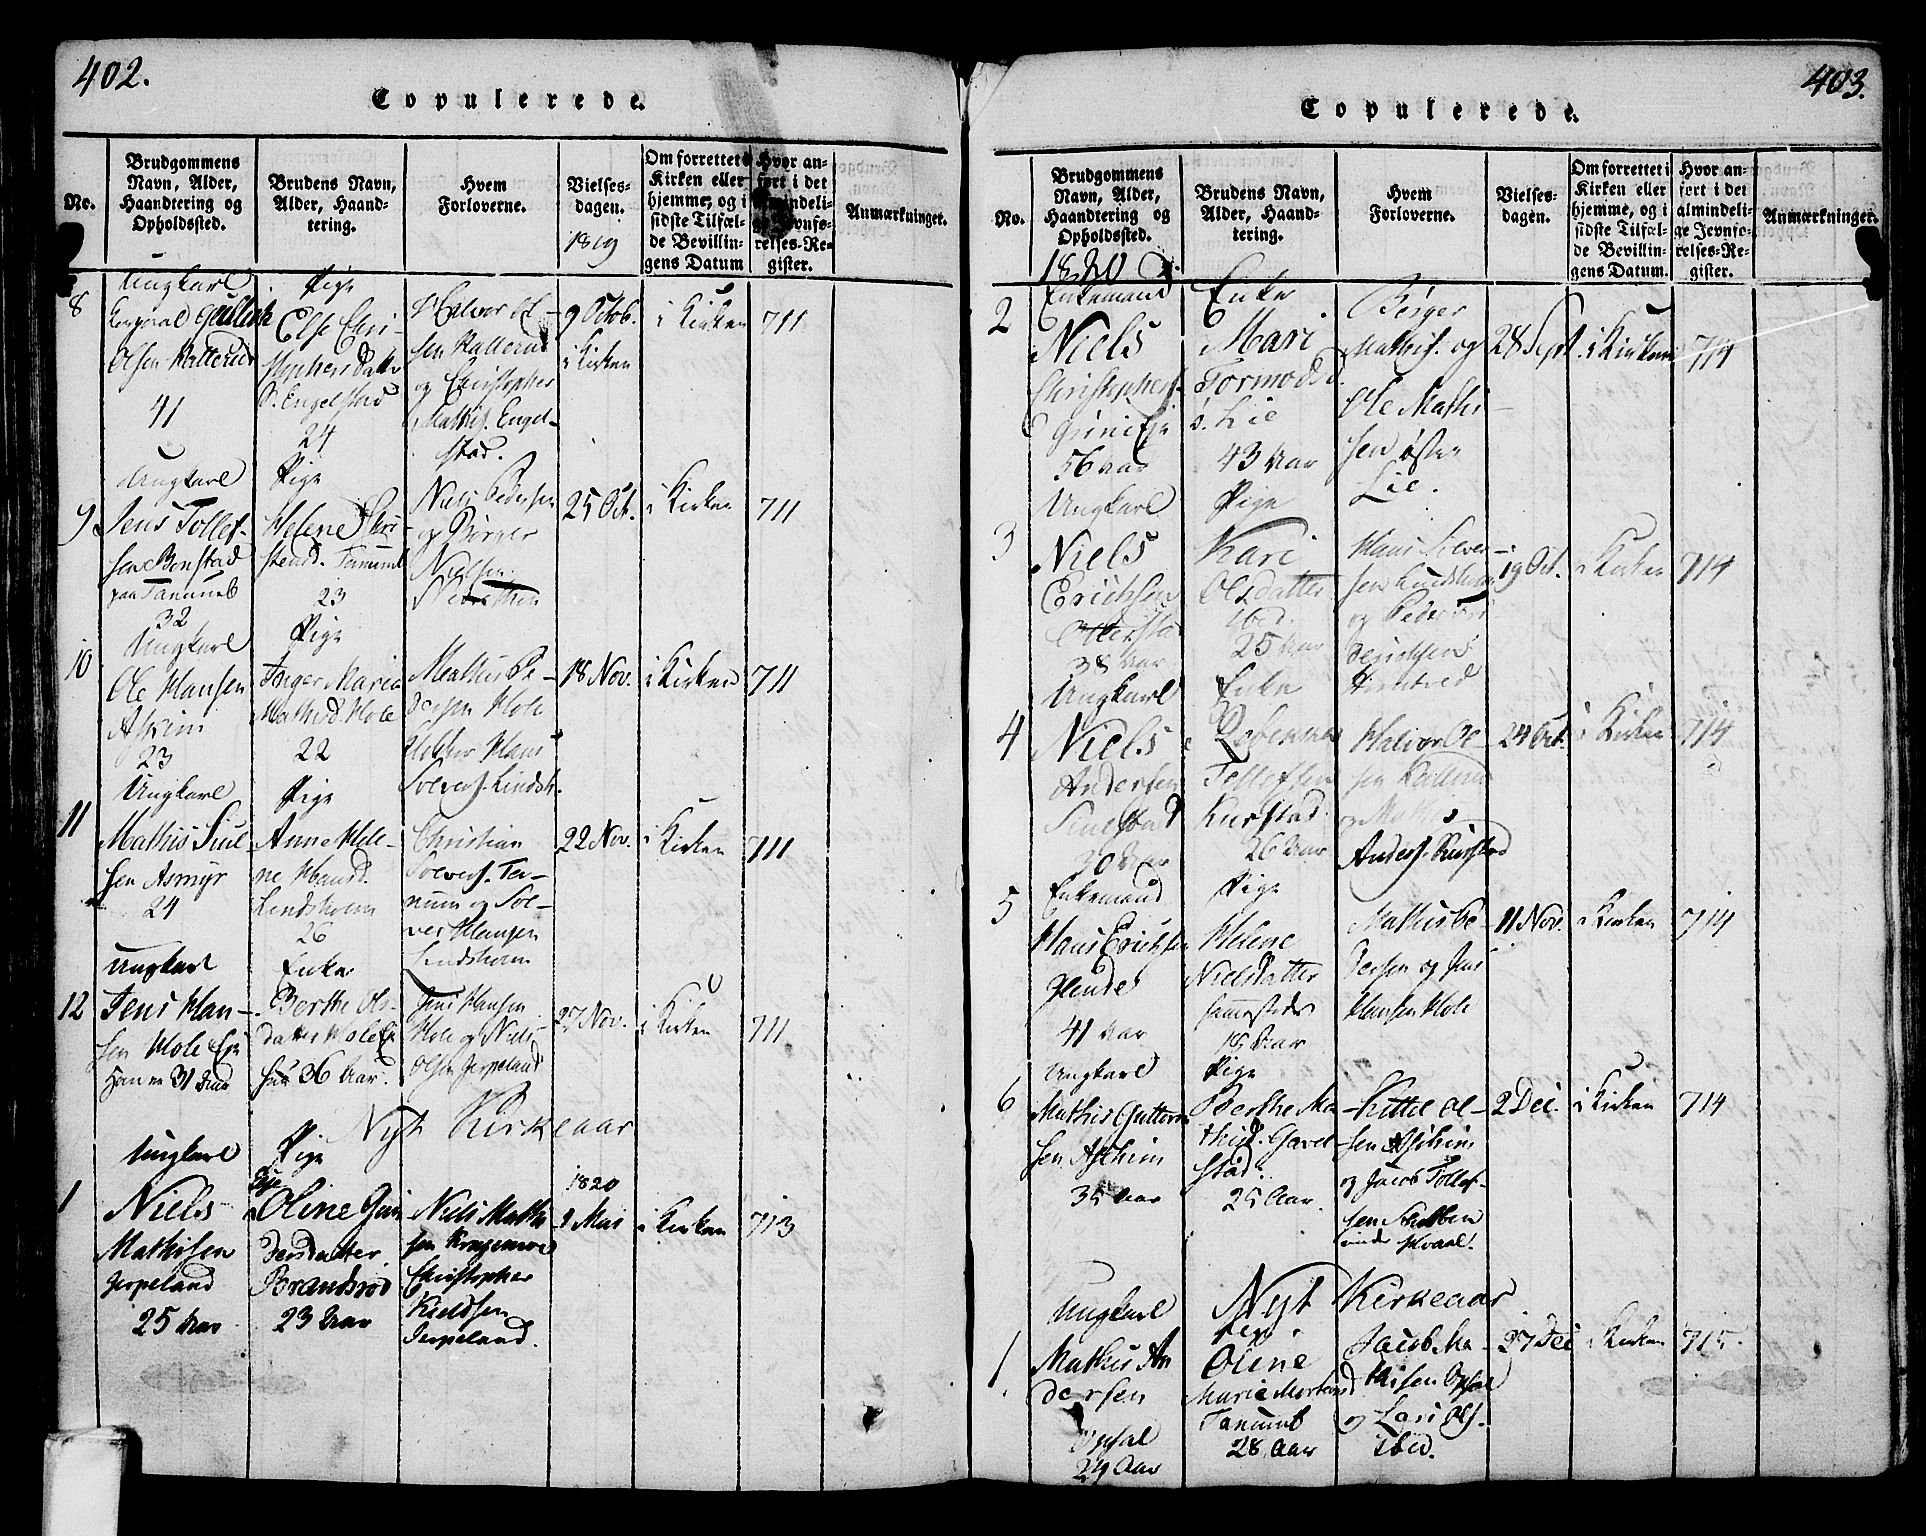 402.
Copulerede.
No.
Brudgommens
Navn, Alder,
Haandtering og
Opholdssted.
Brudens Navn,
Alder, Haand-
tering.
Hvem
Forloverne.
Vielses-
dagen.
1819
Om forrettet i
Kirken eller
hjemme, og i
sidste Tilfæl-
de Bevillin-
gens Datum
Hvor an-
ført i det
almindeli-
ge Jevnfø-
relses-Re-
gister.
Anmærkninger.
8
Ungkarl
Korporal
Olsen
41
Pige
Else Chri-
Engelstad
24
Halvor Ol-
sen
og Christopher
Mathis. Engel-
stad.
9 Octob.
i Kirken
i Kirken
711
9
Ungkarl
Jens Tollef-
sen Bonstad
32
Pige
Helene Chri-
stensd. Tanum
23
Niels Pedersen
og Børger
Nielsen
25 Oct.
i Kirken
711
10
Ungkarl
Ole Hansen
Askim
23
Pige
Inger Maria
Mathisd. Hole
22
Mathis Pe-
dersen Hole
Hans
Solvers. Lindsh.
18 Nov.
i Kirken
711
11
Ungkarl
Mathis Siul-
sen Asmyr
24
Pige
Anne Hele-
ne Hansd.
Lindsholm
26
Christian
Solvers. Ta-
num og Sol-
ver Hansen
Lindsholm
22 Nov.
i Kirken
711
12
Ungkarl
Jens Han-
sen Hole Eje
Han er 31 Aar
Enke
Berthe Ols-
datter Hole Ej
hun 36 Aar.
Jens Hansen
Hole og Niels
Olsen Jerpeland
27 Nov.
i Kirken
711
Nyt Kirkeaar
1
Ungkarl
Niels
Mathisen
Jerpeland
25 Aar
Pige
Oline Gun-
dersdatter
Brandsrød
23 Aar
Niels Mathi-
sen
Christopher
Kieldsen
Jerpeland.
1820
Mai
i Kirken
713
403.
Copulerede.
No.
Brudgommens
Navn, Alder,
Haandtering og
Opholdssted.
1820
Brudens Navn,
Alder, Haand-
tering.
Hvem
Forloverne.
Vielses-
dagen.
Om forrettet i
Kirken eller
hjemme, og i
sidste Tilfæl-
de Bevillin-
gens Datum.
Hvor an-
ført i det
almindeli-
ge Jevnfø-
relses-Re-
gister.
Anmærkninger.
2
Enkemand
Niels
Christophers.
56 Aar
Enke
Mari
Tormodsd.
Lie
43 Aar
Børger
Mathis. og
Ole Mathi-
sen Østre
Lie.
28 Sept.
i Kirken
714
3
Ungkarl
Niels
Erichsen
Otterstad
38 Aar
Pige
Kari
Olsdatter
ibid.
25 Aar
Hans Solver-
sen Lindsholm
og Peder
19 Oct.
i Kirken
714
4
Ungkarl
Niels
Andersen
30 Aar
Enke
Tollefsen
Kurstad
26 Aar
Halvor Ol-
sen
og Mathis
Anders. Kurstad
24 Oct.
i Kirken
714
5
Enkemand
Hans Erichsen
Glende
41 Aar
Pige
Helene
Nielsdatter
sammesteds
Aar
Mathis Pe-
dersen og Jens
Hansen Hole
11 Nov.
i Kirken
714
6
Ungkarl
Mathis Guttorm-
sen Askeim
35 Aar
Pige
Berthe Ma-
thisd. Gavel-
stad.
25 Aar.
Kittel Ol-
sen
og Jacob Tollef-
sen Stubben
under Hvaal.
2 Dec.
i Kirken
714
Nyt Kirkeaar
1.
Ungkarl
Mathis An-
dersen
Opsal
29 Aar
Pige.
Oline
Marie Mortensd
Tanum
28 Aar
Jacob Ma-
thisen Opsal
og Lars Ols.
ibid.
27 Dec
i Kirken
715.